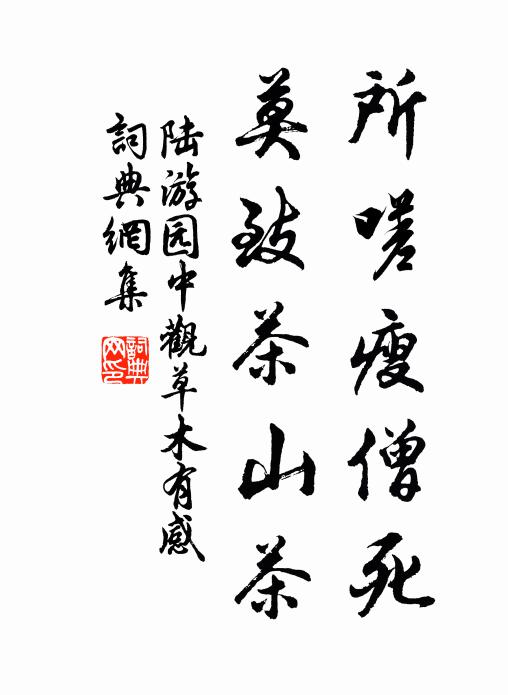 所嗟瘦僧死
莫致茶山茶
陆游园中觀草木有感
詞典網集
詞典网印